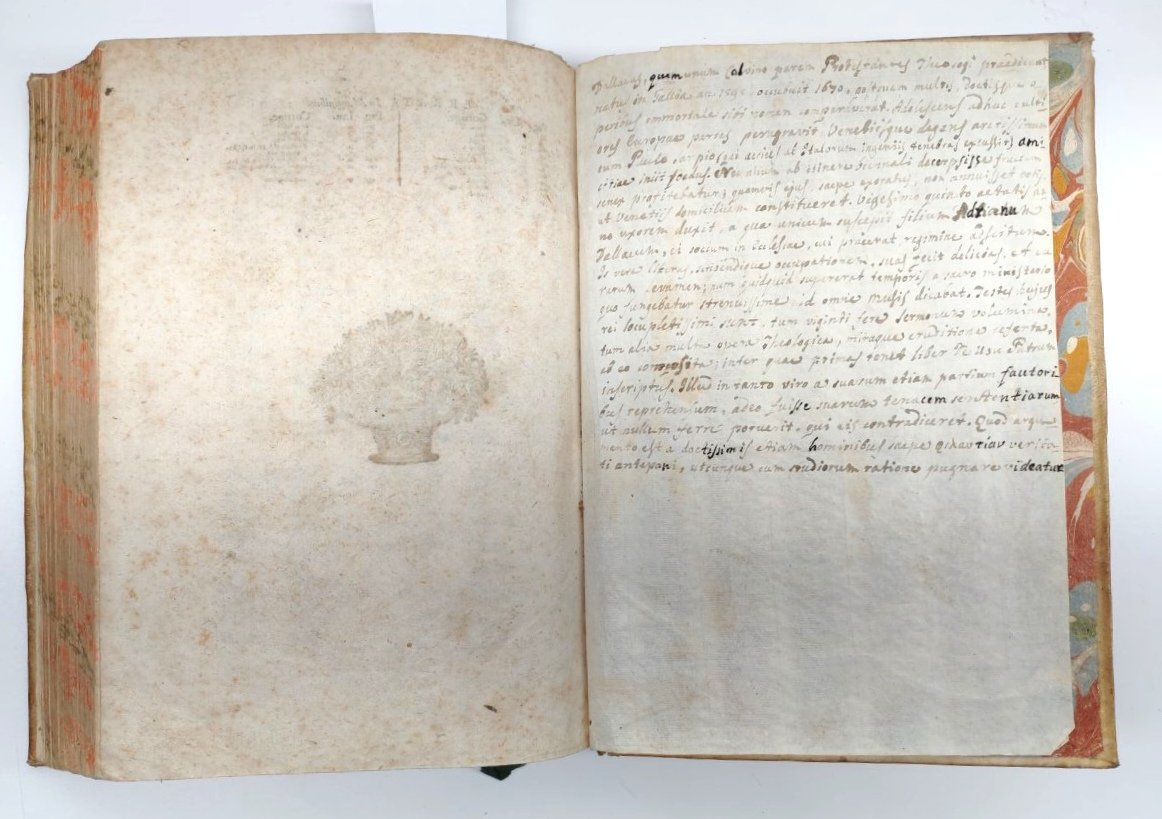 Dallaeus, quem unum Calvino parem Protestantes Theologi praedicant
natus in Gallia an. 1594. occubuit 1670, postquam multis, doctisque o
peribus immortale sibi nomen compararat. Adolescens adhuc culti
ores Europae partes peragravit Venetiisque degens arctissimum
cum Paulo Sarpio (qui acies ab Italorum ingeniis tenebras excussit) ami
citiae iniit foedus. Nec unum ab itinere fructum
senex profitebatur; quamvis ejus, saepe exoratus, non annuisset votis,
ut Venetiis domicilium constitueret. Vigesimo quinto aetatis an
no uxorem duxit, a qua unicum suscepit filium Adrianum
Dallaeum, ei socium in Ecclesiae, cui praeerat regimine adscitum.
Is vero libros, scribendique occupationem, suas fecit delicias, et cu
rarum levamen; nam quidquid supererat temporis a sacro ministerio
quo fungebatur strenuissime, id omne Musis dicabat. Testes hujus
rei locupletissimi sunt, tum viginti fere sermonum volumina,
tum alia multa opera Theologica, miraque eruditione referta,
ab eo composita; inter quae primas tenet liber De Usu Patrum
inscriptus. Illud in tanto viro a suarum etiam partium fautori
bus reprehensum, adeo fuisse suarum tenacem sententiarum
ut nullum ferre potuerit, qui eis contradiceret. Quod argu
mento est a doctissimis etiam hominibus saepe φιλαυτίαν verita
ti anteponi, utcunque cum studiorum ratione pugnare videatur